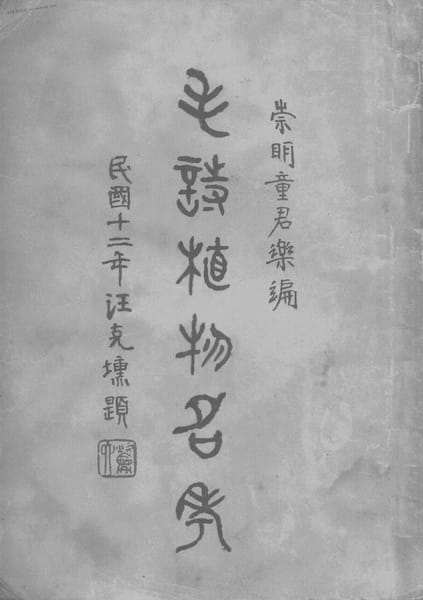 崇明童君樂編
毛詩植物名考
民國十二年汪克壎題